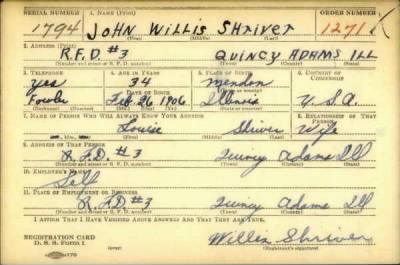 SERIAL NUMBER 1. NAME (Print) ORDER NUMBER
1794 JOHN WILLIS SHRIVER 1271
(First) (Middle) (Last)
2. ADDRESS (Print)
R.F.D #3 QUINCY ADAMS ILL
(Number and street or R. F. D. number) (Town) (County) (State)
3. TELEPHONE 4. AGE IN YEARS 5. PLACE OF BIRTH 6. COUNTRY OF CITIZENSHIP
Yes 34 Mendon
DATE OF BIRTH
Fowler Feb. 26 1906 Illinois U.S.A.
(Exchange) (Number) (Mo.) (Day) (Yr.) (State or country)
7. NAME OF PERSON WHO WILL ALWAYS KNOW YOUR ADDRESS 8. RELATIONSHIP OF THAT PERSON
Louise Shriver Wife
(Mr., Mrs., Miss) (First) (Middle) (Last)
9. ADDRESS OF THAT PERSON
R.F.D. #3 Quincy Adams Ill
(Number and street or R. F. D. number) (Town) (County) (State)
10. EMPLOYER'S NAME
Self
11. PLACE OF EMPLOYMENT OR BUSINESS
R.F.D #3 Quincy Adams Ill
(Number and street or R. F. D. number) (Town) (County) (State)
I AFFIRM THAT I HAVE VERIFIED ABOVE ANSWERS AND THAT THEY ARE TRUE.
REGISTRATION CARD
D. S. S. Form 1
Willis Shriver
(Registrant's signature)